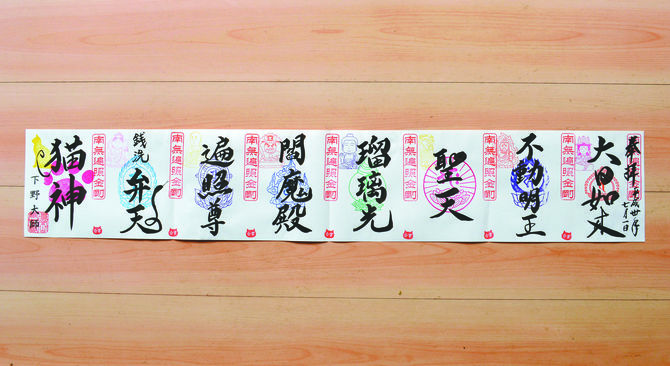 奉拝
平成卅年
七月一日
南無遍照金剛
大日如来
南無遍照金剛
不動明王
南無遍照金剛
聖天
南無遍照金剛
瑠璃光
南無遍照金剛
閻魔殿
南無遍照金剛
遍照尊
南無遍照金剛
銭洗
弁天
南無遍照金剛
猫神
下野大師